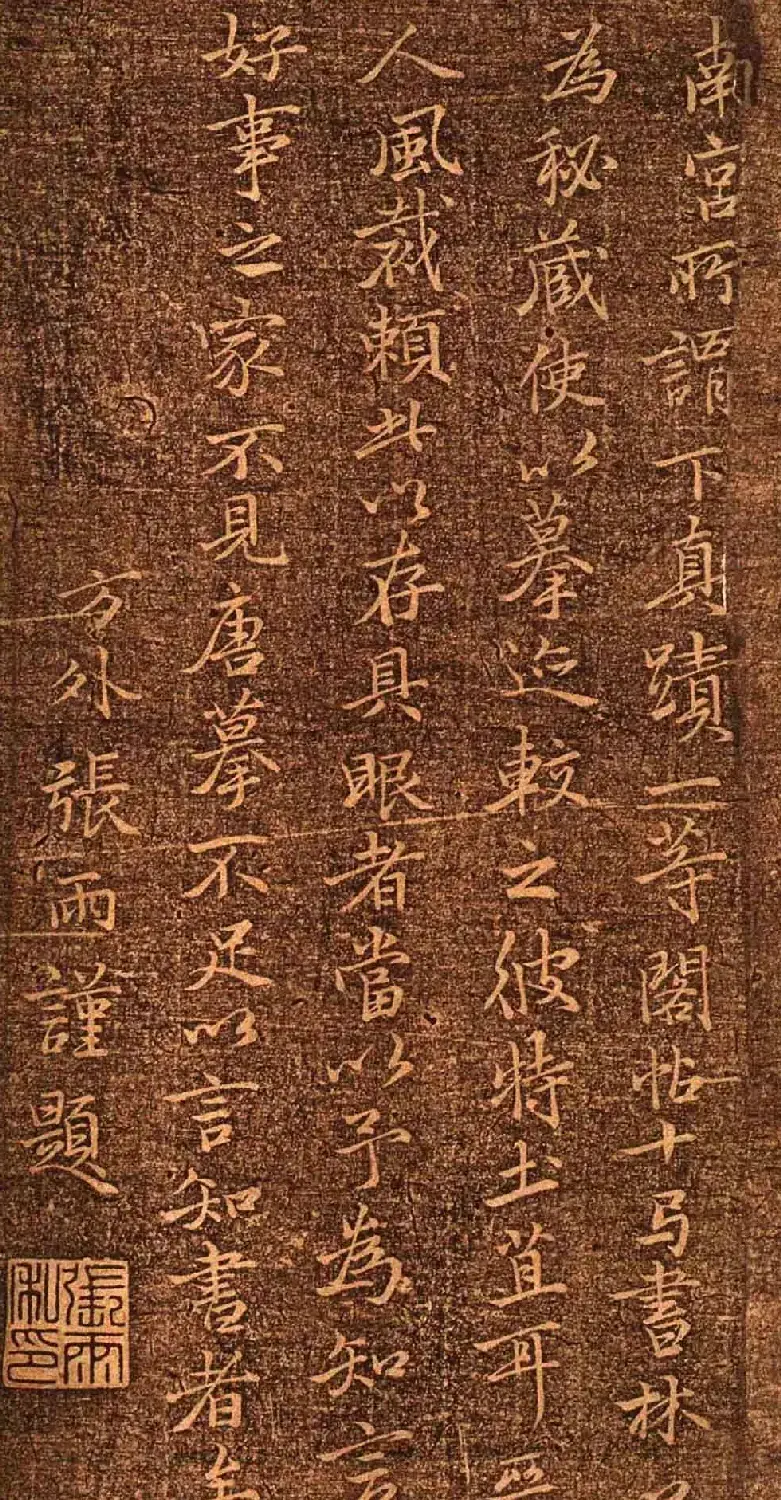 南宮所謂下真蹟一等閣帖十弓書林
為秘藏使以摹迹較之彼特土苴耳
人風裁賴此以存具眼者當以予為知言
好事之家不見唐摹不足以言知書者
方外張雨謹題
張雨私印